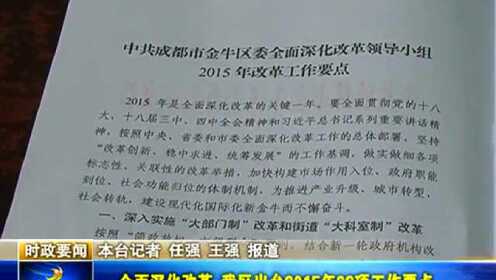 中共成都市金牛区委全面深化改革领导小组
2015年改革工作要点
2015年是全面深化改革的关键一年。要全面贯彻党的十八
大、十八届三中、四中全会精神和习近平总书记系列重要讲话精
神，按照中央、省委和市委全面深化改革工作的总体部署，坚持
“改革创新、稳中求进、统筹发展”的工作基调，做实做细各项
标志性、关联性的改革举措，加快构建市场作用入位、政府职能
到位、社会功能归位的体制机制，为推进产业升级、城市转型、
社会转轨，建设现代化国际化新金牛而不懈奋斗。
一、深入实施“大部门制”改革和街道“大科室制”改革
结合新一轮政府机构改
时政要闻 本台记者 任强 王强 报道